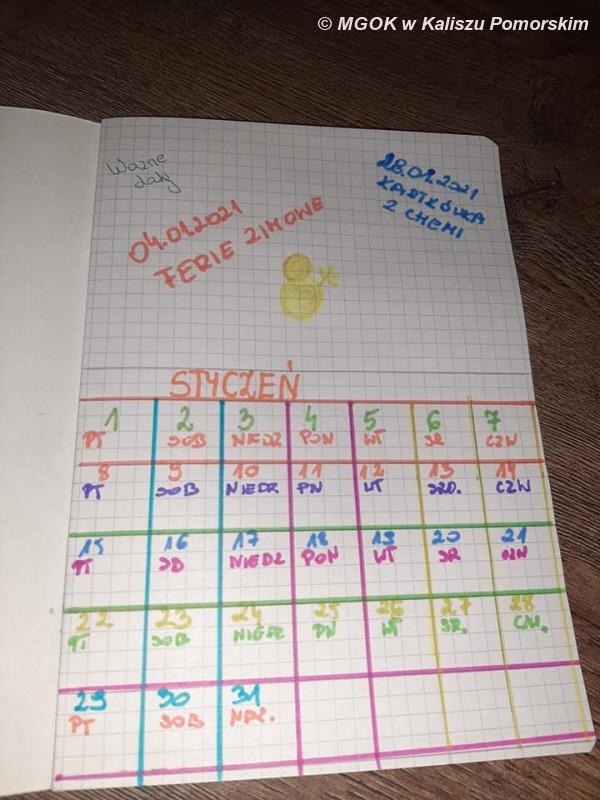 © MGOK w Kaliszu Pomorskim
Ważne
daty
28.01.2021
KARTKÓWKA
Z CHEMI
04.01.2021
FERIE ZIMOWE
STYCZEŃ
1 2 3 4 5 6 7
PT SOB NIEDZ PON WT ŚR CZW
8 9 10 11 12 13 14
PT SOB NIEDZ PN WT ŚRD. CZW
15 16 17 18 19 20 21
PT SB NIEDZ PON WT ŚR CZW
22 23 24 25 26 27 28
PT SOB NIEDZ PN WT ŚR. CZW.
29 30 31
PT SOB NDZ.